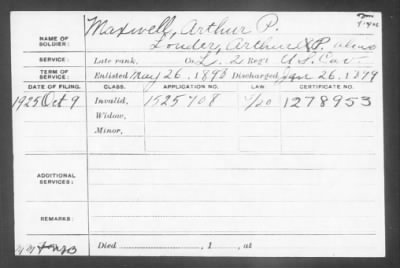 NAME OF SOLDIER: Maxwell, Arthur P.
Louder, Arthur P. alias
SERVICE: Late rank, Co. L. 2 Reg't U.S. Cav.
TERM OF SERVICE: Enlisted May 26. 1898 Discharged Jan 26. 1899
DATE OF FILING. CLASS. APPLICATION NO. LAW CERTIFICATE NO.
1925 Oct 9 Invalid, 1525708 1278953
Widow,
Minor,
ADDITIONAL SERVICES:
REMARKS:
Died , 1 , at